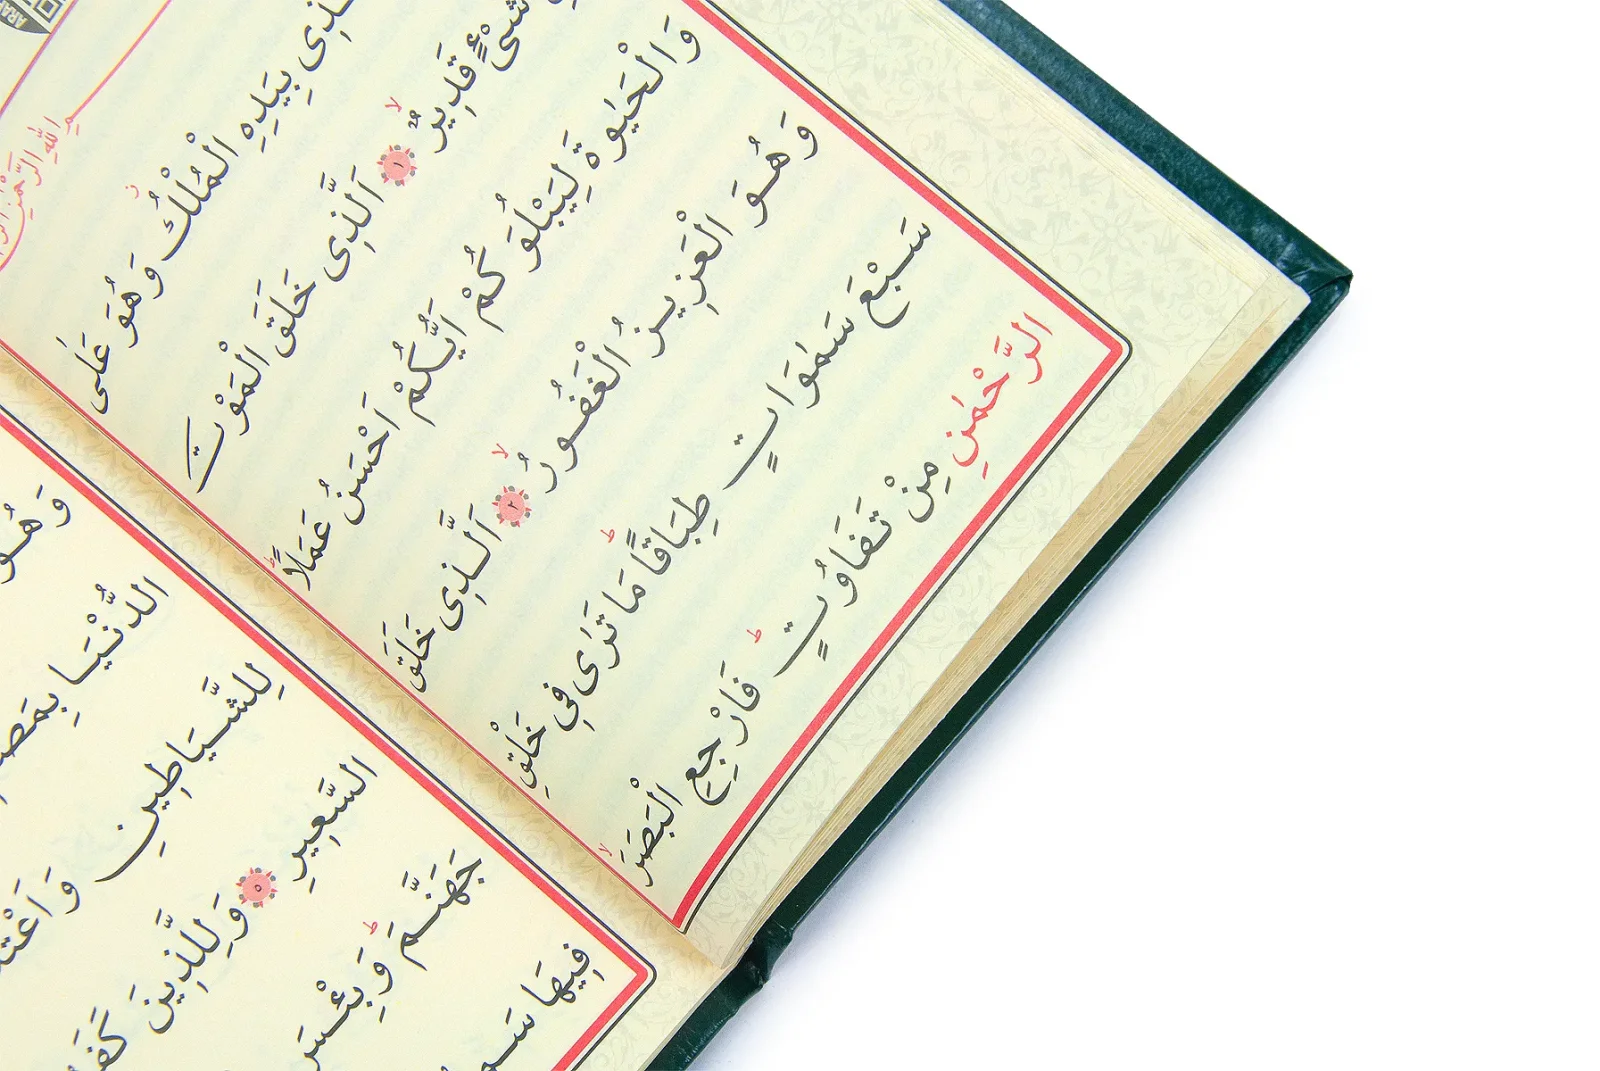 اللّٰهِ الرَّحْمٰنِ
بِيَدِهِ الْمُلْكُ وَهُوَ عَلٰى
شَىْءٍ قَدِيرٌۙ ١ اَلَّذِى خَلَقَ الْمَوْتَ
وَالْحَيٰوةَ لِيَبْلُوَكُمْ اَيُّكُمْ اَحْسَنُ عَمَلًاؕ
وَهُوَ الْعَزِيزُ الْغَفُورُۙ ٢ اَلَّذِى خَلَقَ
سَبْعَ سَمٰوَاتٍ طِبَاقًاؕ مَا تَرٰى فِى خَلْقِ
الرَّحْمٰنِ مِنْ تَفَاوُتٍؕ فَارْجِعِ الْبَصَرَۙ
وَهُوَ
الدُّنْيَا بِمَصَـ
لِلشَّيَاطِينِ وَاَعْتَـ
السَّعِيرِ ٥ وَلِلَّذِينَ كَفَـ
جَهَنَّمَؕ وَبِئْسَ
فِيهَا